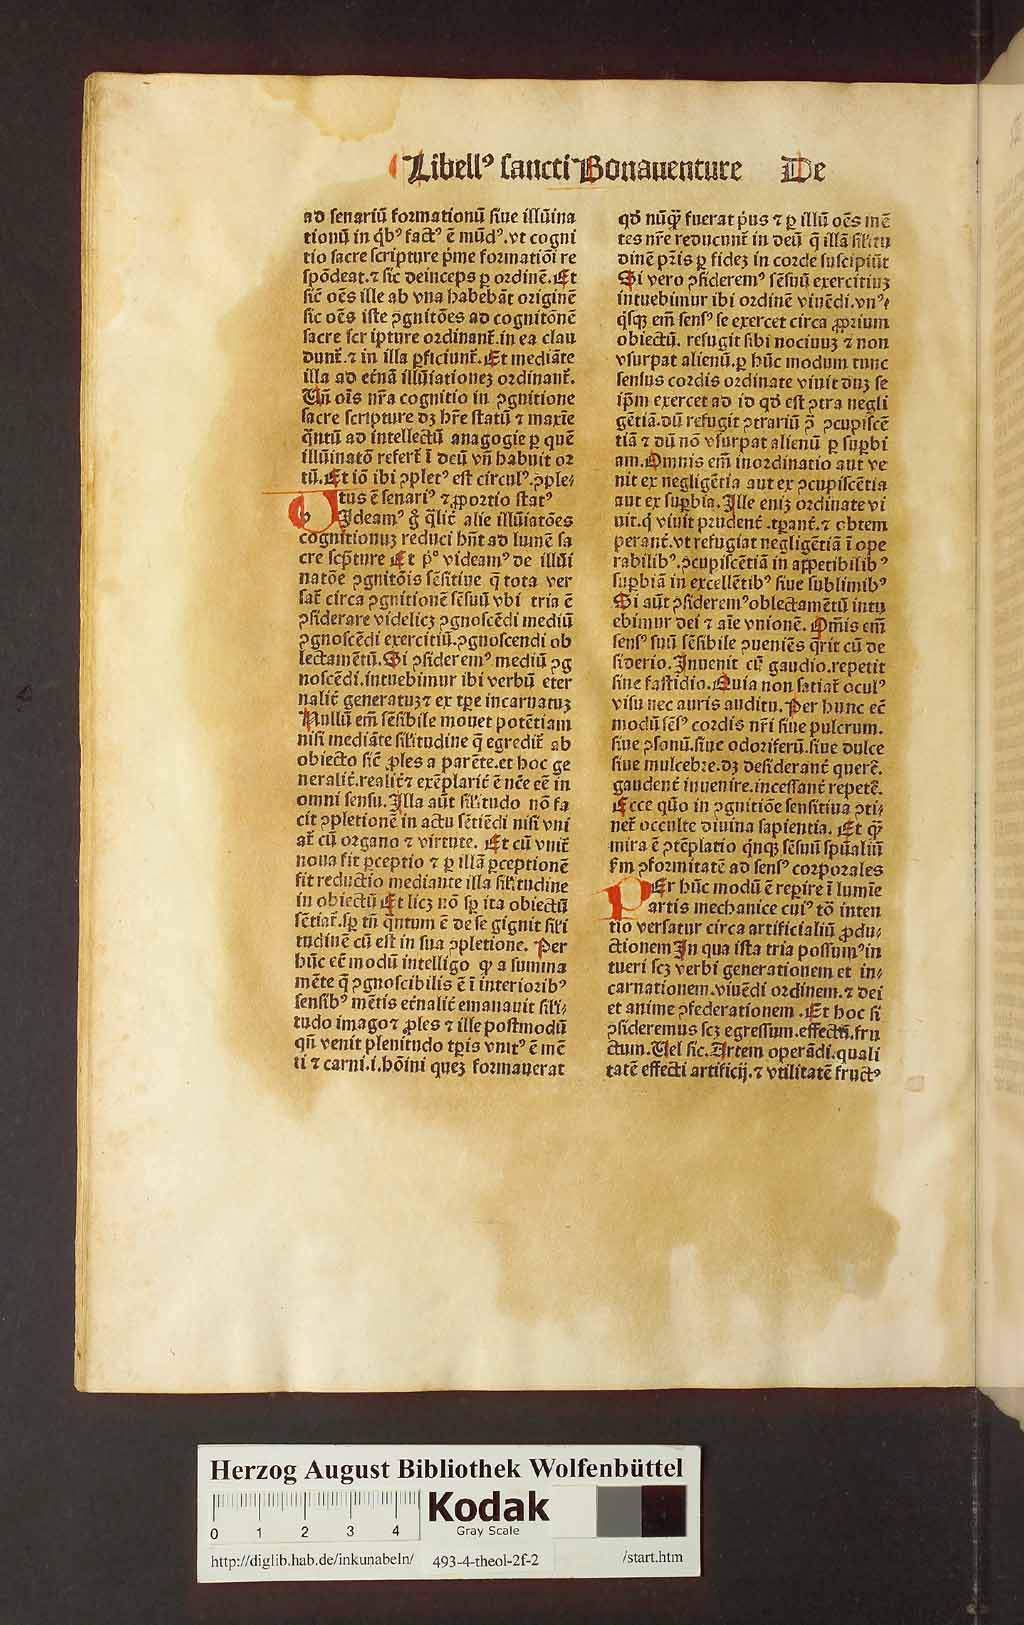 Libellꝰ sancti Bonauenture De
ad senariū formationū siue illūina
tionū in qͥbꝰ factꝰ ē mūdꝰ.vt cogni
tio sacre scripture pͥme formatiōi re
spōdeat.⁊ sic deinceps ꝑ ordinē.Et
sic̄ oēs ille ab vna habebāt originē
sic oēs iste ꝯgnitōes ad cognitōnē
sacre scripture ordinant̄.in ea clau
dunt̄.⁊ in illa ꝑficiunt̄.Et mediāte
illa ad et̄nā illūiationeꝫ ordinant̄.
Vn̄ oīs nr̄a cognitio in ꝯgnitione
sacre scripture dꝫ hr̄e statū ⁊ maxīe
qͣntū ad intellectū anagogie ꝑ quē
illūinatō refert̄ ī deū vn̄ habuit or
tū.Et iō ibi ꝯpletꝰ est circulꝰ.ꝯple⸗
tus ē senariꝰ ⁊ ꝓportio statꝰ
VIdeamꝰ gͦ qͣlit̄ alie illūiatōes
cognitionuꝫ reduci hn̄t ad lumē sa
cre scp̄ture Et pͦ videamꝰ de illūi
natōe ꝯgnitōis sēsitiue q̄ tota ver
sat̄ circa ꝯgnitionē sēsuū vbi tria ē
ꝯsiderare videlicꝫ ꝯgnoscēdi mediū
ꝯgnoscēdi exercitiū.ꝯgnoscendi ob
lectamētū.Si ꝯsideremꝰ mediū ꝯg
noscēdi.intuebimur ibi verbū eter
nalit̄ generatuꝫ ⁊ ex tp̄e incarnatuꝫ
Nullū em̄ sēsibile mouet potētiam
nisi mediāte sil̄itudine q̄ egredit̄ ab
obiecto sic̄ ꝓles a parēte.et hoc ge
neralit̄.realit̄ ⁊ exēplarit̄ ē nc̄e eē in
omni sensu.Illa aūt sil̄itudo nō fa
cit ꝯpletionē in actu sētiēdi nisi vni
at̄ cū organo ⁊ virtute. Et cū vnit̄
noua fit ꝑceptio ⁊ ꝑ illā ꝑceptionē
fit reductio mediante illa sil̄itudine
in obiectū Et licꝫ nō sp̄ ita obiectū
sētiat̄.sp̄ tn̄ qͣntum ē de se gignit sil̄i
tudinē cū est in sua ꝯpletione. Per
hūc eē modū intelligo ꝙ a summa
mēte q̄ ꝯgnoscibilis ē ī interioribꝰ
sensibꝰ mētis et̄nalit̄ emanauit sil̄i⸗
tudo imago ⁊ ꝓles ⁊ ille postmodū
qn̄ venit plenitudo tp̄is vnitꝰ ē mē
ti ⁊ carni.i.hōini queꝫ formauerat
qd̓ nūqͣꝫ fuerat pͥus ⁊ ꝑ illū oēs mē
tes nr̄e reducunt̄ in deū q̄ illā sil̄itu
dinē pr̄is ꝑ fideꝫ in corde suscipiūt
Si vero ꝯsideremꝰ sēsuū exercitiuꝫ
intuebimur ibi ordinē viuēdi.vnꝰ⸗
qͥsqꝫ em̄ sensꝰ se exercet circa ꝓprium
obiectū. refugit sibi nociuuꝫ ⁊ non
vsurpat alienū.ꝑ hūc modum tunc
sensus cordis ordinate viuit duꝫ se
ip̄m exercet ad id qd̓ est ꝯtra negli
gētiā.dū refugit ꝯtrariū ꝯcupiscē
tiā ⁊ dū nō vsurpat alienū ꝑ suꝑbi
am.Omnis em̄ inordinatio aut ve
nit ex negligētia aut ex ꝯcupiscētia
aut ex suꝑbia.Ille eniꝫ ordinate vi
uit.qͥ viuit prudent̄.tꝑant̄.⁊ obtem
perant̄.vt refugiat negligētiā ī ope
rabilibꝰ.ꝯcupiscētiā in appetibilibꝰ
suꝑbiā in excellētibꝰ siue sublimibꝰ
Si aūt ꝯsideremꝰ oblectamētū intu
ebimur dei ⁊ aīe vnionē. Om̄is em̄
sensꝰ suū sēsibile ꝯueniēs qͥrit cū de
siderio.Inuenit cū gaudio.repetit
sine fastidio.Quia non satiat̄ oculꝰ
visu nec auris auditu.Per hunc eē
modū sēsꝰ cordis nr̄i siue pulcrum.
siue ꝯsonū.siue odoriferū.siue dulce
siue mulcebre.dꝫ desiderant̄ querē.
gaudent̄ inuenire.incessant̄ repetē.
Ecce quō in ꝯgnitiōe sensitiua ꝯti⸗
net̄ occulte diuina sapientia. Et qͣꝫ
mira ē ꝯtēplatio qͥnqꝫ sēsuū spūaliū
fm̄ ꝯformitatē ad sensꝰ corporales
PEr hūc modū ē reꝑire ī lumīe
artis mechanice cuiꝰ tō inten
tio versatur circa artificialiū ꝓdu⸗
ctionem In qua ista tria possumꝰ in
tueri scꝫ verbi generationem et in⸗
carnationem.viuēdi ordinem.⁊ dei
et anime ꝯfederationem.Et hoc si
ꝯsideremus scꝫ egressum.effectū.fru
ctum.Vel sic.Artem operādi.quali
tatē effecti artificij.⁊ vtilitatē fructꝰ
Herzog August Bibliothek Wolfenbüttel
0 1 2 3 4
Kodak
Gray Scale
http://diglib.hab.de/inkunabeln/ 493-4-theol-2f-2 /start.htm